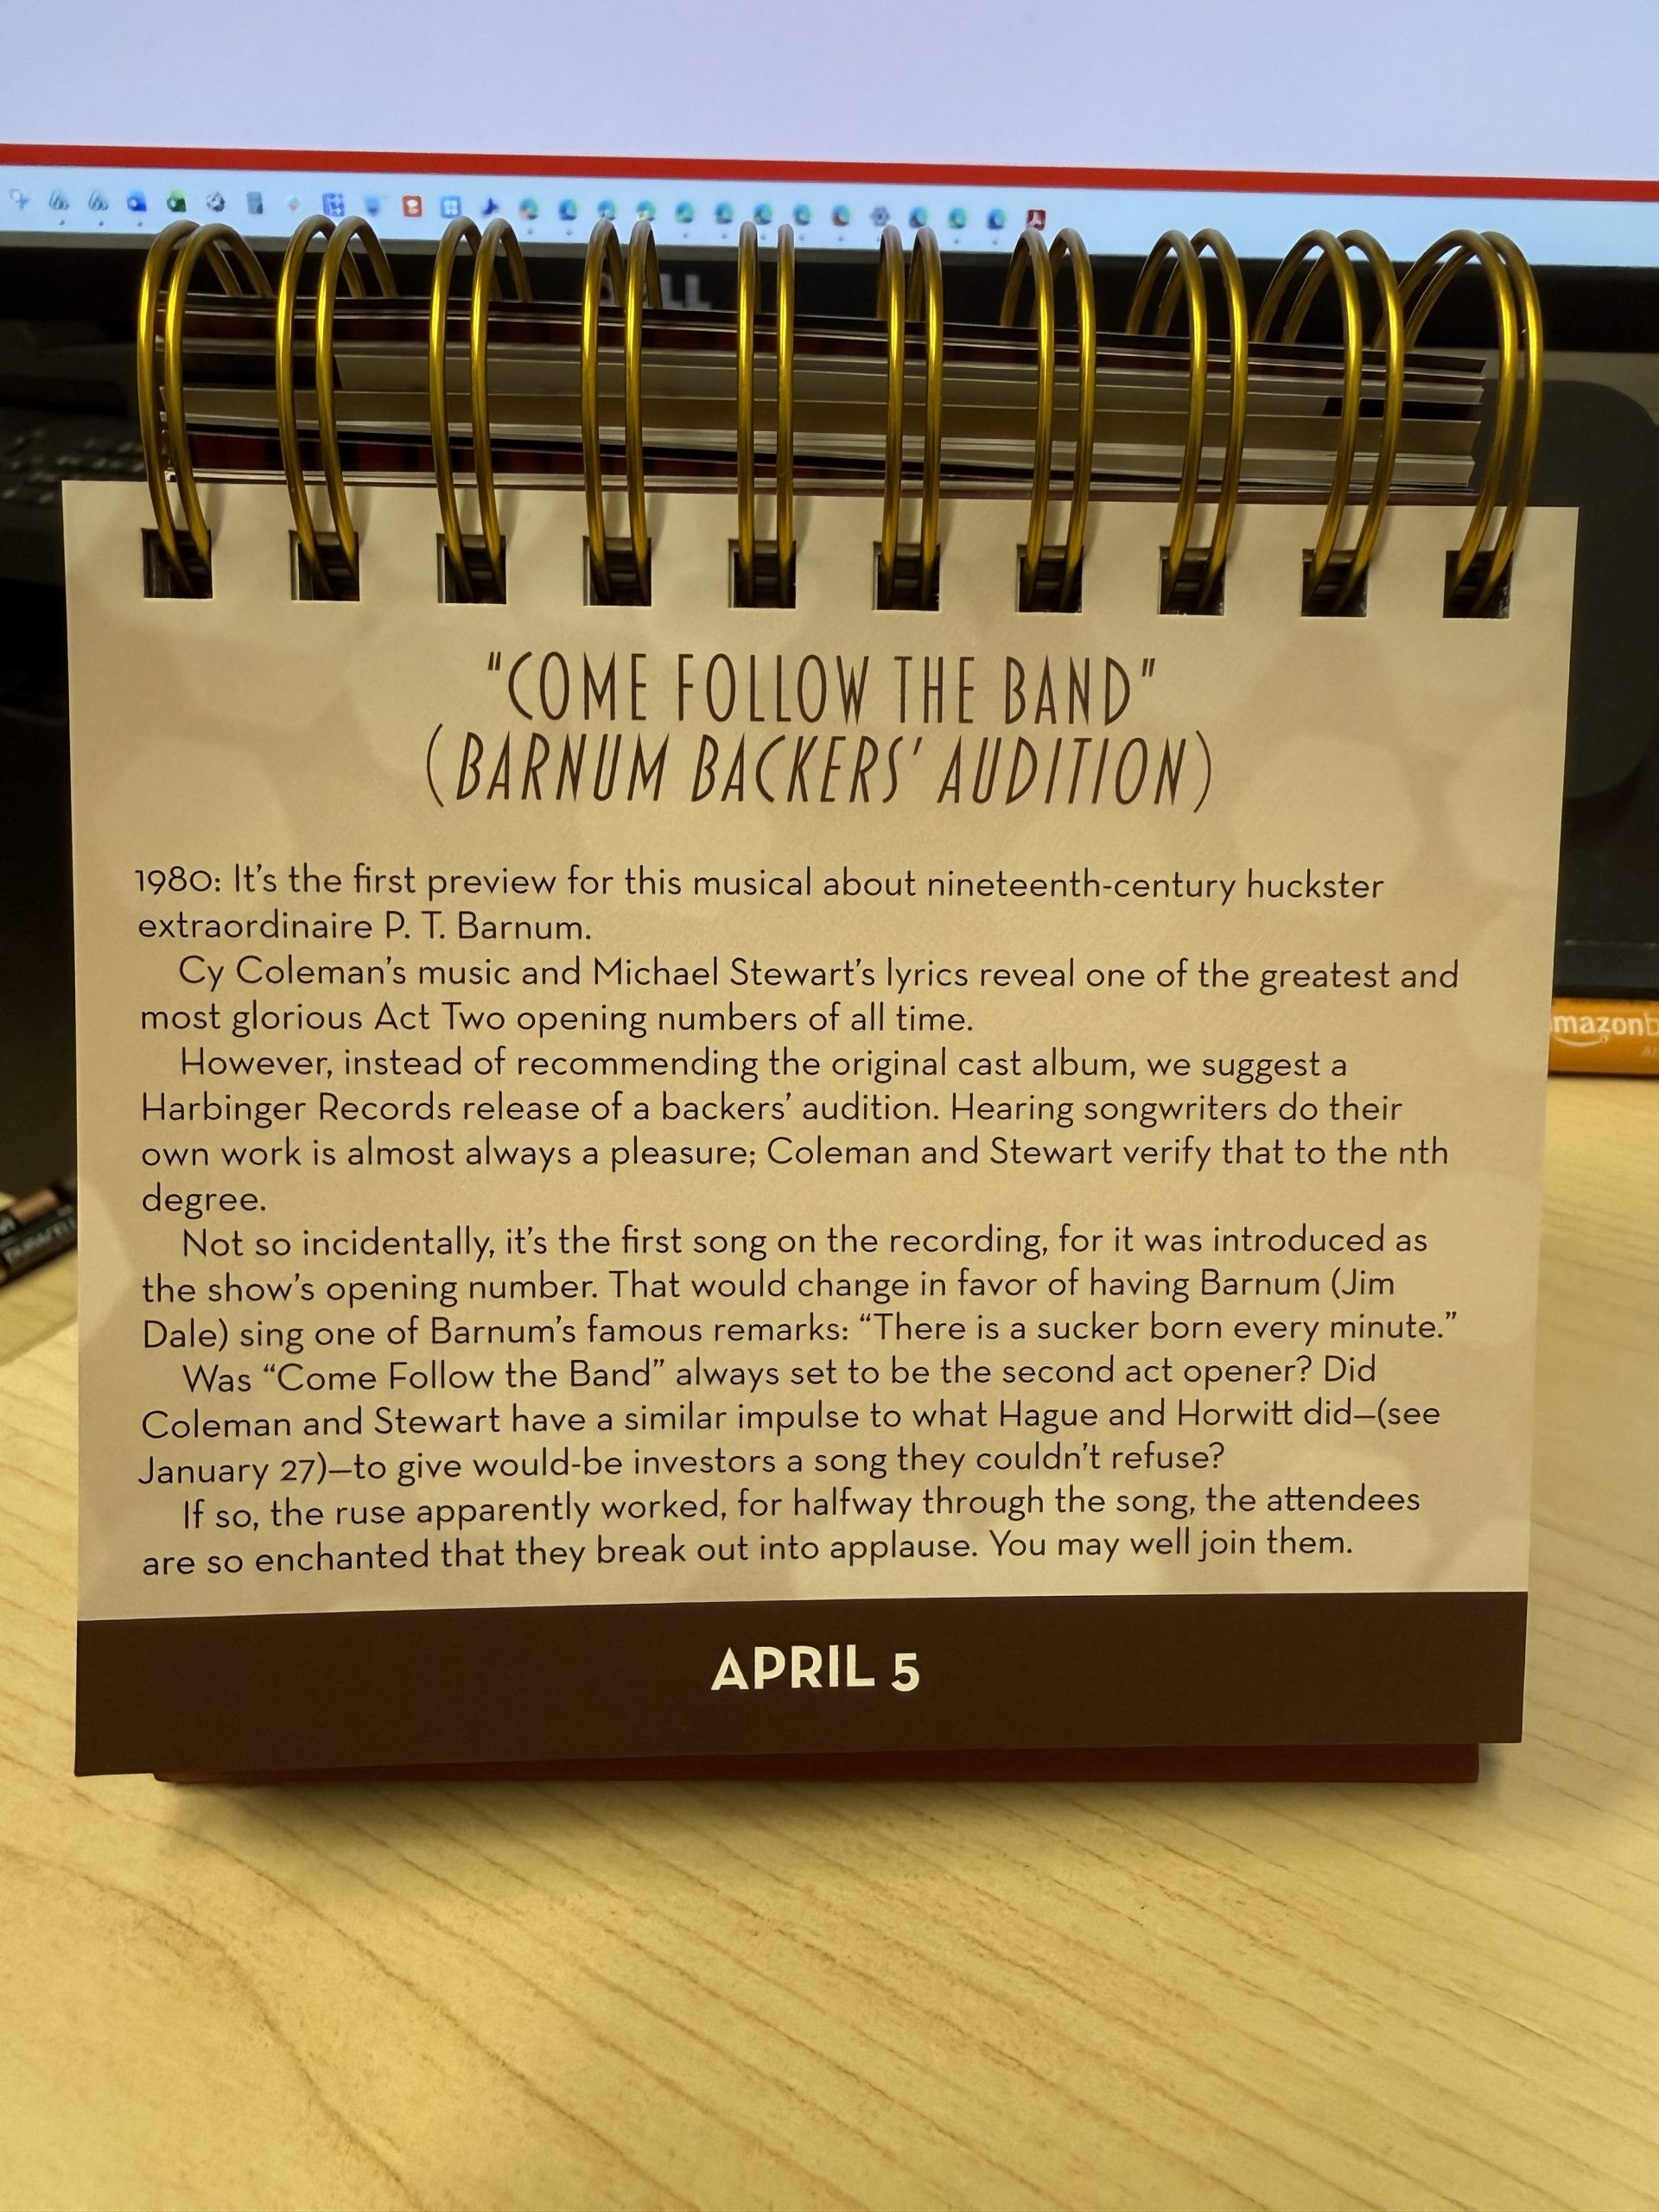 LL
"COME FOLLOW THE BAND"
(BARNUM BACKERS' AUDITION)
1980: It's the first preview for this musical about nineteenth-century huckster
extraordinaire P. T. Barnum.
Cy Coleman's music and Michael Stewart's lyrics reveal one of the greatest and
most glorious Act Two opening numbers of all time.
However, instead of recommending the original cast album, we suggest a
Harbinger Records release of a backers' audition. Hearing songwriters do their
own work is almost always a pleasure; Coleman and Stewart verify that to the nth
degree.
Not so incidentally, it's the first song on the recording, for it was introduced as
the show's opening number. That would change in favor of having Barnum (Jim
Dale) sing one of Barnum's famous remarks: “There is a sucker born every minute.”
Was “Come Follow the Band” always set to be the second act opener? Did
Coleman and Stewart have a similar impulse to what Hague and Horwitt did—(see
January 27)—to give would-be investors a song they couldn't refuse?
If so, the ruse apparently worked, for halfway through the song, the attendees
are so enchanted that they break out into applause. You may well join them.
APRIL 5
mazonb